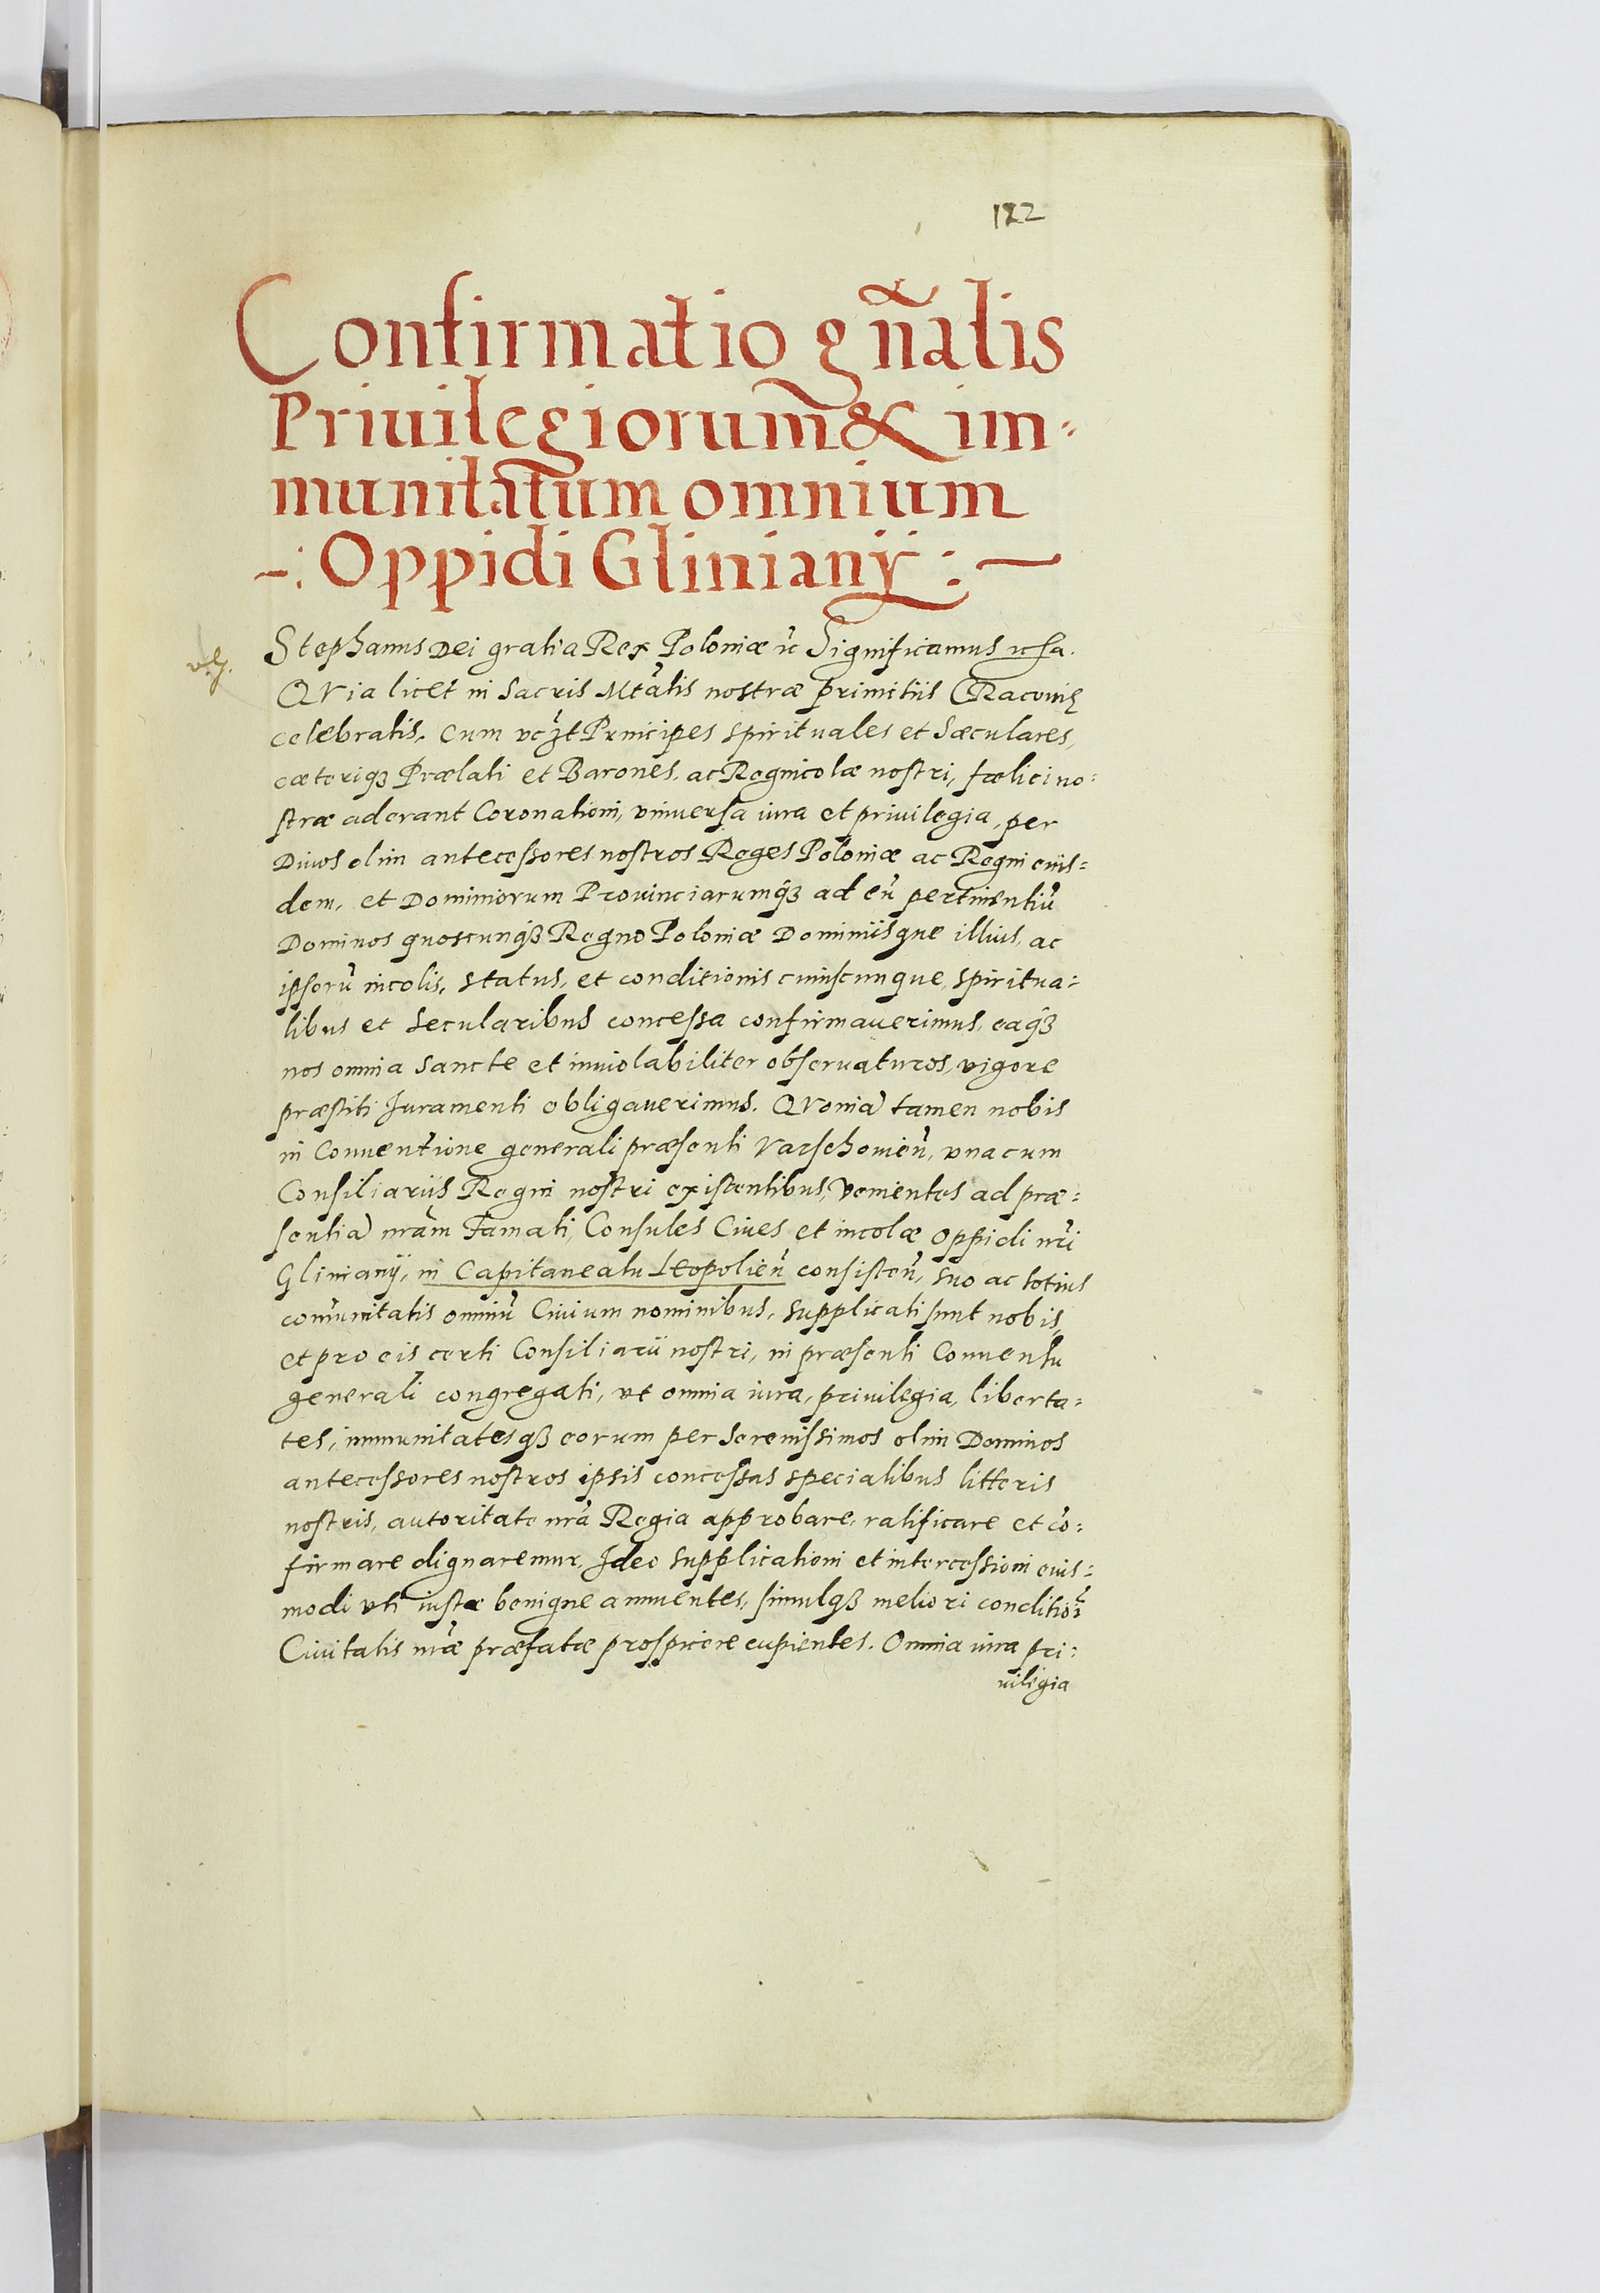 122
Confirmatio gñalis
Priuilegiorum & im-
munitatum omnium
-: Oppidi Glinianÿ :-
Stephanus Dei gratia Rex Poloniæ Significamus
QVia licet in Sacris Mtãtis nostræ primitiis CRacouię
celebratis, cum Principes spirituales et Sæculares,
cæteriqȝ Prælati et Barones, ac Regnicolæ nostri, fœlici no-
stræ aderant Coronationi, vniuersa iura et priuilegia, per
Diuos olim antecessores nostros Reges Poloniæ ac Regni eius-
dem, et Dominiorum Prouinciarumqȝ ad eũ pertinentiũ
Dominos quoscunqȝ Regno Poloniæ Dominiisque illius, ac
ipsorũ incolis, status, et conditionis cuiuscunque, spiritua-
libus et secularibus concessa confirmauerimus, eaqȝ
nos omnia sancte et inuiolabiliter obseruaturos, vigore
præstiti Juramenti obligauerimus. QVoniã tamen nobis
in Conuentione generali præsenti Varschouień, vna cum
Consiliariis Regni nostri existentibus, Venientes ad præ-
sentiã nrãm Famati, Consules Ciues et incolæ Oppidi nrĩ
Glinianÿ, in Capitaneatu Leopolień consisteń, suo ac totius
com̃unitatis omniũ Ciuium nominibus, supplicati sunt nobis,
et pro eis certi Consiliarii nostri, in præsenti Conuentu
generali congregati, vt omnia iura, priuilegia, liberta-
tes, immunitatesqȝ eorum per Serenissimos olim Dominos
antecessores nostros ipsis concessas specialibus litteris
nostris, autoritate nrã Regia approbare, ratificare et cõ-
firmare dignaremur, Ideo supplicationi et intercessioni euis-
modi vti iustæ benigne annuentes, simulqȝ meliori conditioĩ
Ciuitatis nrãe præfatæ prospicere cupientes. Omnia iura pri-
uilegia